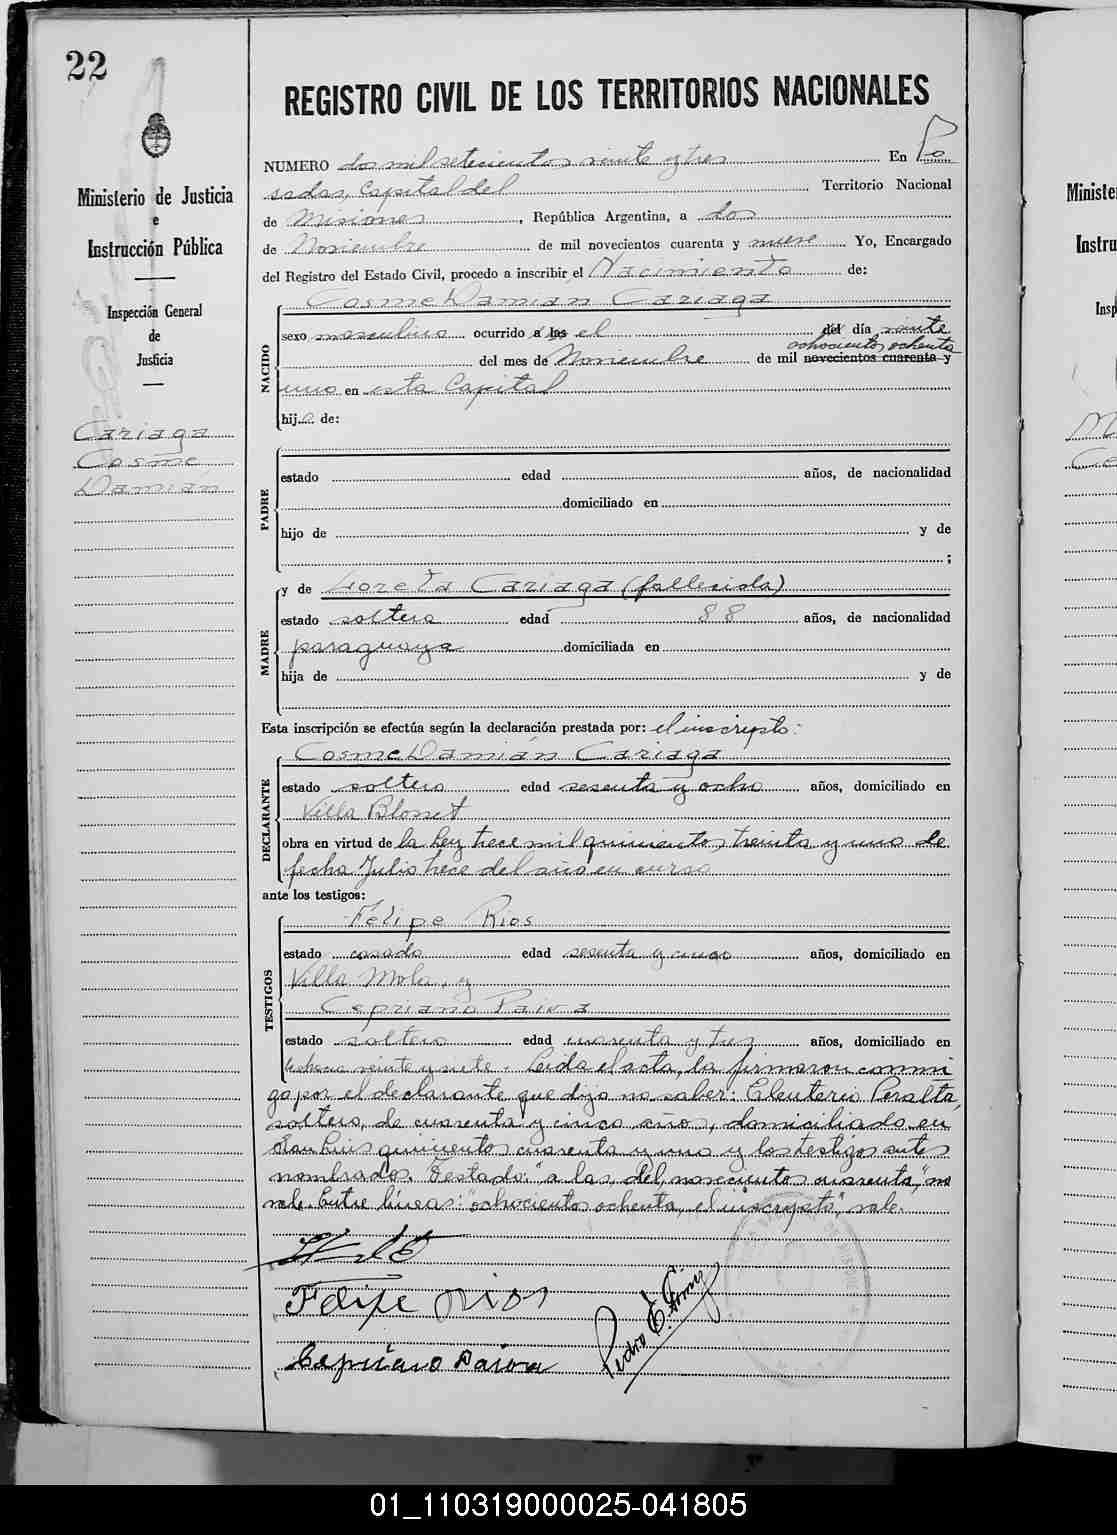 22
Ministerio de Justicia
e
Instrucción Pública
Inspección General
de
Justicia
Cariaga
Cosme
Damián
REGISTRO CIVIL DE LOS TERRITORIOS NACIONALES
NUMERO dos mil setecientos veinte y tres En Po
sadas, Capital del Territorio Nacional
de Misiones, República Argentina, a dos
de Noviembre de mil novecientos cuarenta y nueve Yo, Encargado
del Registro del Estado Civil, procedo a inscribir el Nacimiento de:
Cosme Damián Cariaga
NACIDO
sexo masculino ocurrido a las el del día veinte
ochocientos ochenta
del mes de Noviembre de mil novecientos cuarenta y
uno en esta Capital
hijo de:
PADRE
estado edad años, de nacionalidad
domiciliado en
hijo de y de
;
MADRE
y de Loreta Cariaga (fallecida)
estado soltera edad 88 años, de nacionalidad
paraguaya domiciliada en
hija de y de
Esta inscripción se efectúa según la declaración prestada por: el inscripto:
DECLARANTE
Cosme Damián Cariaga
estado soltero edad sesenta y ocho años, domiciliado en
Villa Blosset
obra en virtud de la Ley trece mil quinientos treinta y uno de
fecha Julio trece del año en curso
ante los testigos:
TESTIGOS
Felipe Rios
estado casado edad sesenta y cinco años, domiciliado en
Villa Mola, y
Cepriano Paiva
estado soltero edad cuarenta y tres años, domiciliado en
veinte y siete. Leida el acta, la firmaron conmi
go por el declarante que dijo no saber: Eleuterio Peralta,
soltero, de cuarenta y cinco años, domiciliado en
San Luis quinientos cuarenta y uno y los testigos antes
nombrados. Testado: "a las, del, novecientos cuarenta," no
vale. Entre líneas: "ochocientos ochenta, el inscripto", vale.
Felipe Rios
Cepriano Paiva
Pedro E.
Ministe
Instru
Insp
01_110319000025-041805